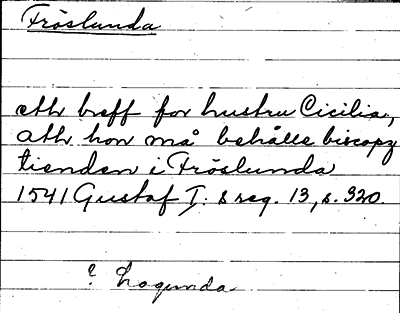 Fröslunda
eth breff for hustru Cicilia,
ath hon må behålle biscopz
tienden i Fröslunda
1541 Gustaf I:s reg. 13, s. 320.
? Lagunda